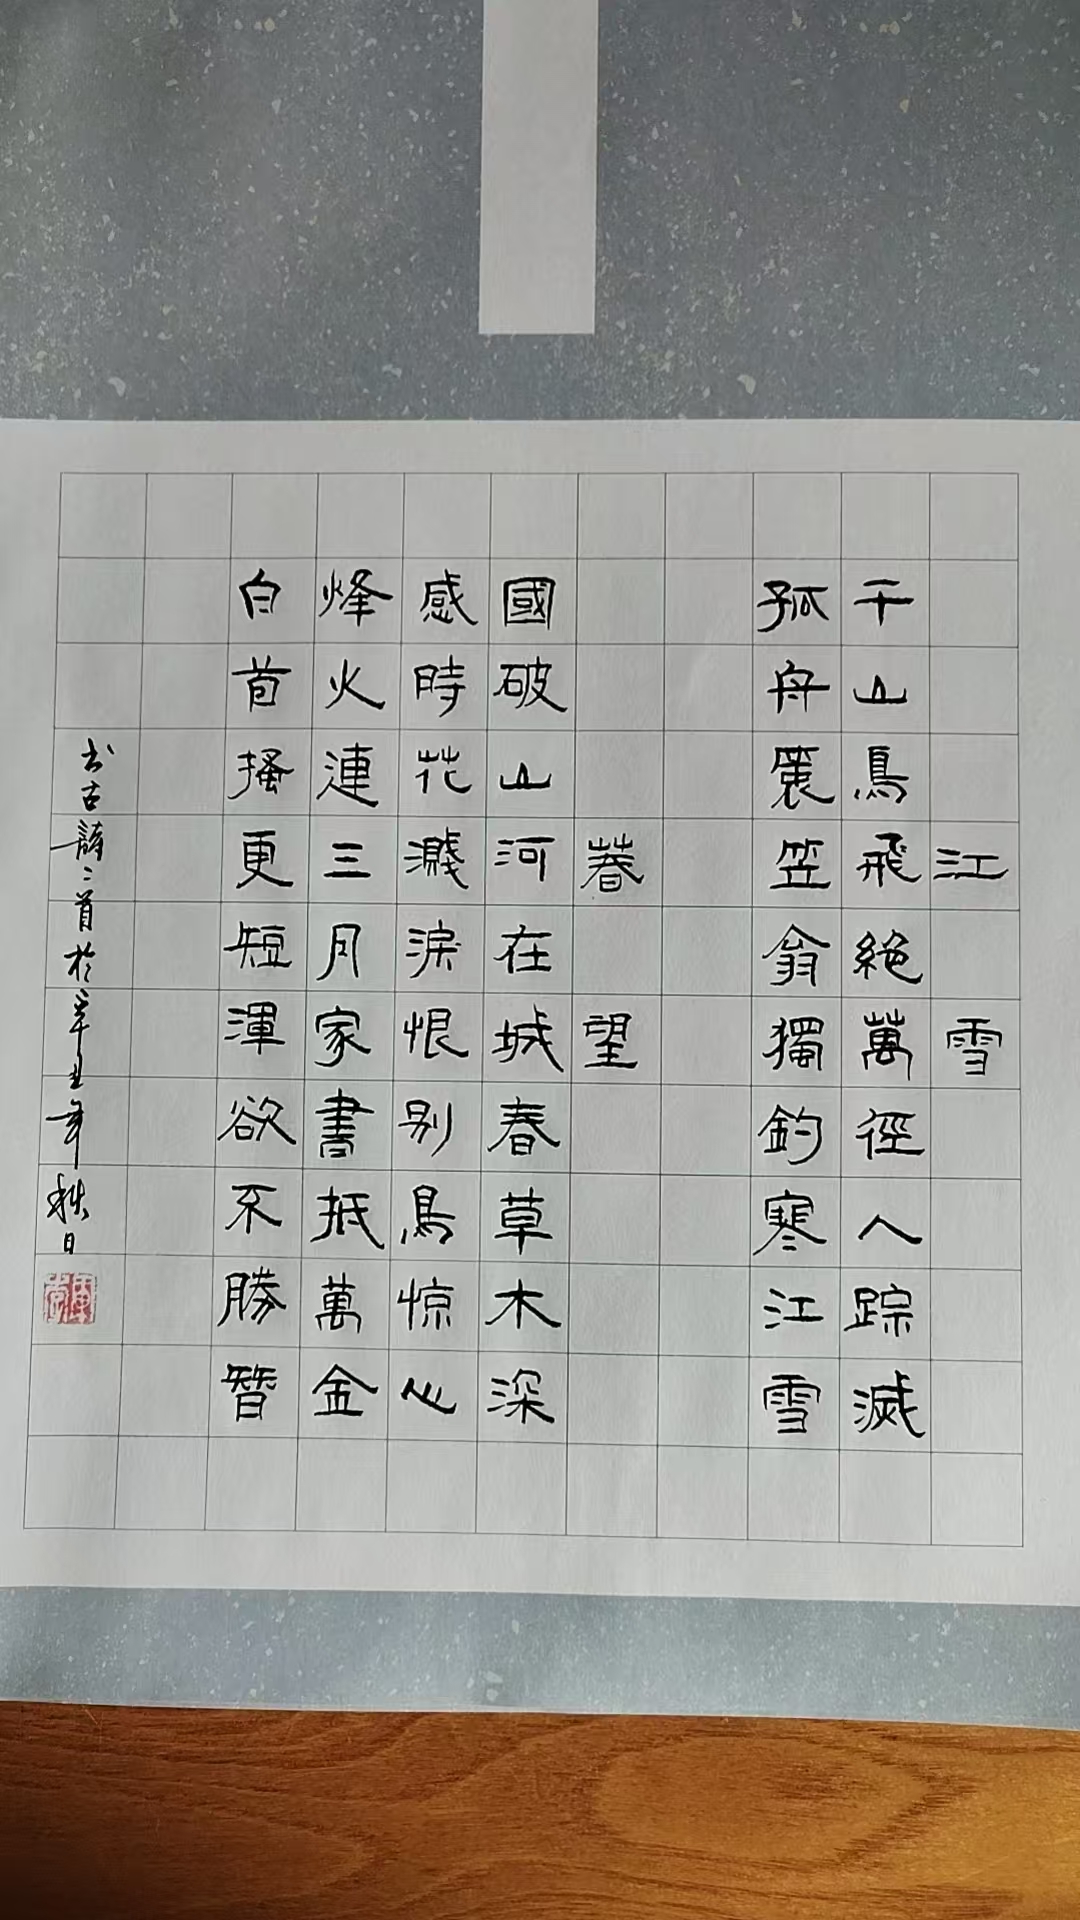 江雪
千山鳥飛絕萬徑人踪滅
孤舟蓑笠翁獨釣寒江雪
春望
國破山河在城春草木深
感時花濺淚恨别鳥惊心
烽火連三月家書抵萬金
白首搔更短渾欲不勝簪
书古詩二首於辛丑年秋日